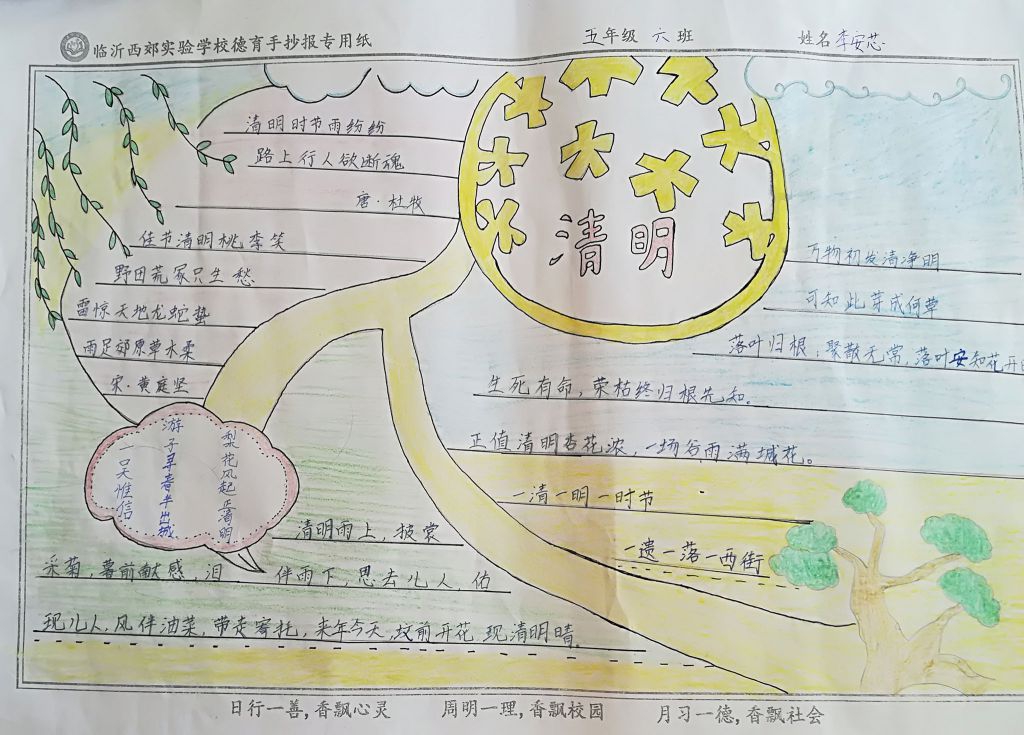 临沂西郊实验学校德育手抄报专用纸
五年级 六班
姓名 李安芯
清明
清明时节雨纷纷
路上行人欲断魂
唐·杜牧
佳节清明桃李笑
野田荒冢只生愁
雷惊天地龙蛇蛰
雨足郊原草木柔
宋·黄庭坚
梨花风起正清明
游子寻春半出城
—吴惟信
万物初发清净明
可知此芽成何草
落叶归根，聚散无常，落叶安知花开日
生死有命，荣枯终归根先知。
正值清明杏花浓，一场谷雨满城花。
一清一明一时节
一遗一落一西街
清明雨上，披裳
采菊，暮前献感，泪伴雨下，思去儿人，佑
现儿人，风伴油菜，带走寄托，来年今天，坟前开花，现清明晴。
日行一善，香飘心灵
周明一理，香飘校园
月习一德，香飘社会